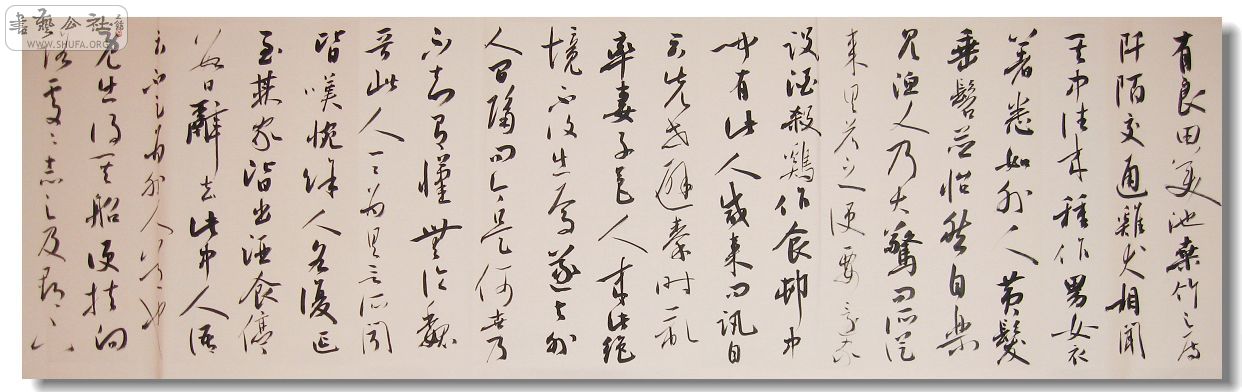 有良田美池桑竹之属
阡陌交通雞犬相聞
其中往來種作男女衣
著悉如外人黃髮
垂髫並怡然自樂
見漁人乃大驚問所從
來具答之便要還家
設酒殺鷄作食邨中
聞有此人咸來問訊自
云先世避秦時之亂
率妻子邑人來此絕
境不復出焉遂與外
人間隔問今是何世乃
不知有漢無論魏
晉此人一一為具言所聞
皆嘆惋餘人各復延
至其家皆出酒食停
數日辭去此中人語
云不足為外人道也
既出得其船便扶向
路處〻志之及郡下
書藝公社
WWW.SHUFA.ORG